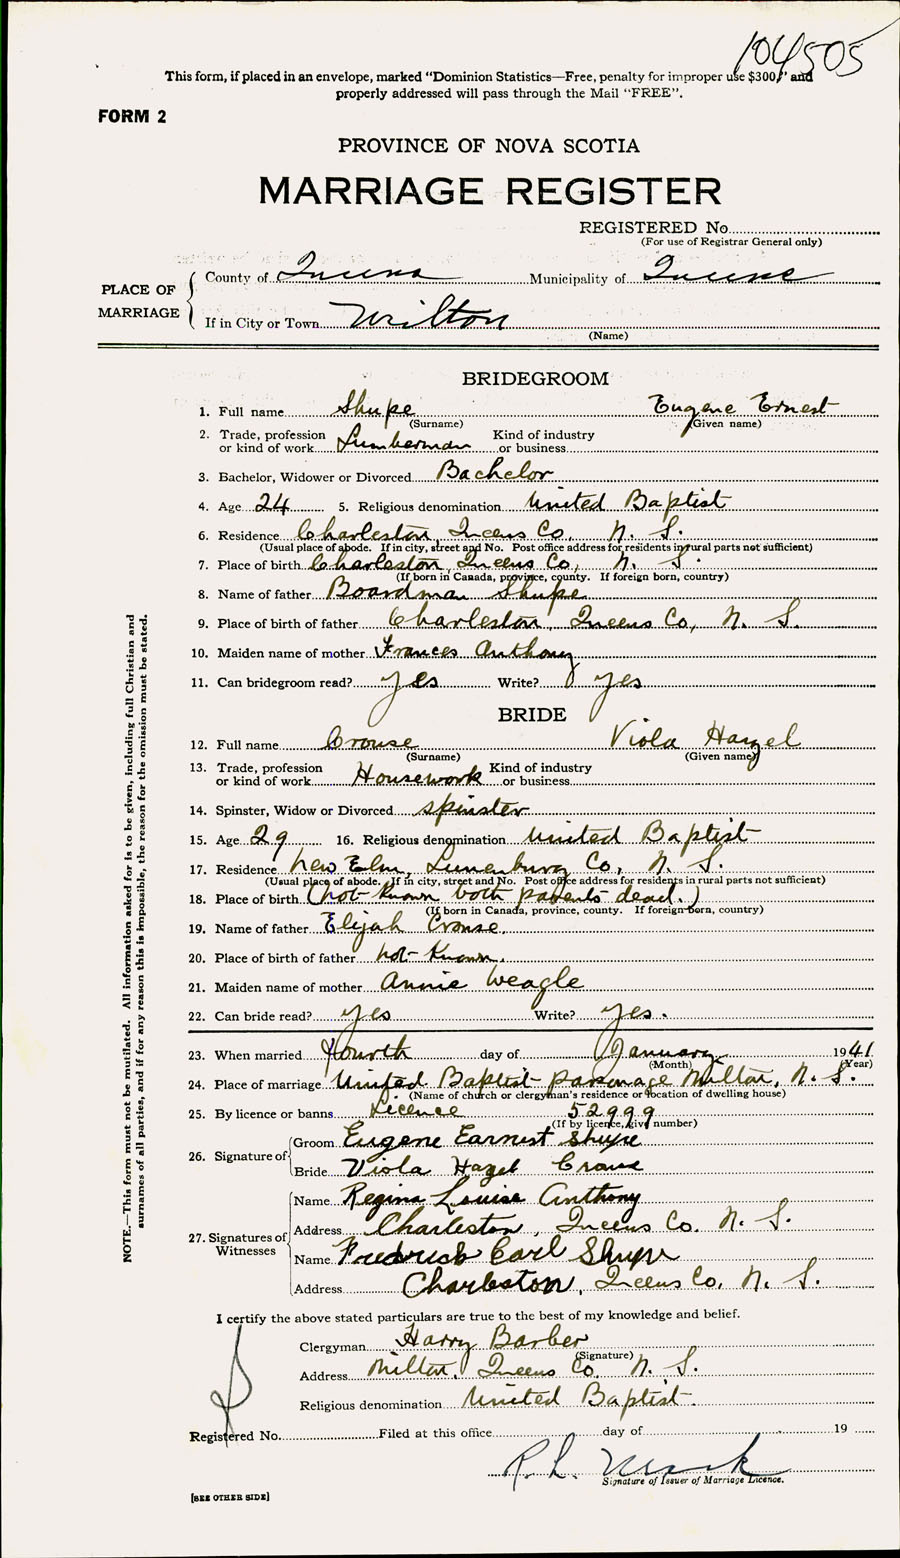 104505
This form, if placed in an envelope, marked “Dominion Statistics—Free, penalty for improper use $300,” and
properly addressed will pass through the Mail “FREE”.
FORM 2
PROVINCE OF NOVA SCOTIA
MARRIAGE REGISTER
REGISTERED No.
(For use of Registrar General only)
PLACE OF MARRIAGE
County of Queens Municipality of Queens
If in City or Town Milton
(Name)
BRIDEGROOM
1. Full name Shupe Eugene Ernest
(Surname) (Given name)
2. Trade, profession or kind of work Lumberman Kind of industry or business
3. Bachelor, Widower or Divorced Bachelor
4. Age 24 5. Religious denomination United Baptist
6. Residence Charleston, Queens Co, N. S.
(Usual place of abode. If in city, street and No. Post office address for residents in rural parts not sufficient)
7. Place of birth Charleston, Queens Co, N. S.
(If born in Canada, province, county. If foreign born, country)
8. Name of father Boardman Shupe
9. Place of birth of father Charleston, Queens Co, N. S.
10. Maiden name of mother Frances Anthony
11. Can bridegroom read? yes Write? yes
BRIDE
12. Full name Crouse Viola Hazel
(Surname) (Given name)
13. Trade, profession or kind of work Housework Kind of industry or business
14. Spinster, Widow or Divorced spinster
15. Age 29 16. Religious denomination United Baptist
17. Residence New Elm, Lunenburg Co, N. S.
(Usual place of abode. If in city, street and No. Post office address for residents in rural parts not sufficient)
18. Place of birth (not known both parents dead.)
(If born in Canada, province, county. If foreign-born, country)
19. Name of father Elijah Crouse.
20. Place of birth of father not known.
21. Maiden name of mother Annie Weagle
22. Can bride read? yes Write? yes.
23. When married Fourth day of January 1941
(Month) (Year)
24. Place of marriage United Baptist parsonage Milton, N. S.
(Name of church or clergyman’s residence or location of dwelling house)
25. By licence or banns Licence 52999
(If by licence, give number)
26. Signature of Groom Eugene Earnest Shupe
Bride Viola Hazel Crouse
27. Signatures of Witnesses
Name Regina Louise Anthony
Address Charleston, Queens Co. N. S.
Name Fredrick Earl Shupe
Address Charleston, Queens Co, N. S.
I certify the above stated particulars are true to the best of my knowledge and belief.
Clergyman Harry Barber
(Signature)
Address Milton, Queens Co. N. S.
Religious denomination United Baptist.
Registered No. Filed at this office day of 19
R. L.
Signature of Issuer of Marriage Licence.
[SEE OTHER SIDE]
NOTE.—This form must not be mutilated. All information asked for is to be given, including full Christian and
surnames of all parties, and if for any reason this is impossible, the reason for the omission must be stated.